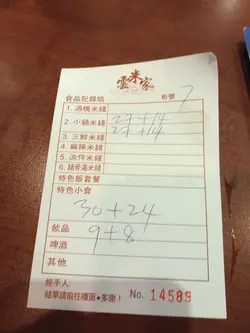 雲米家
食品記錄咭 枱號 7
1. 過橋米綫
2. 小鍋米綫 27+14
27+14
3. 三鮮米綫
4. 麻辣米綫
5. 涼伴米綫
6. 豬骨湯米綫
特色飯套餐
特色小食
30+24
飲品 9+8
啤酒
其他
經手人:
結單請前往櫃面•多謝! No. 14589